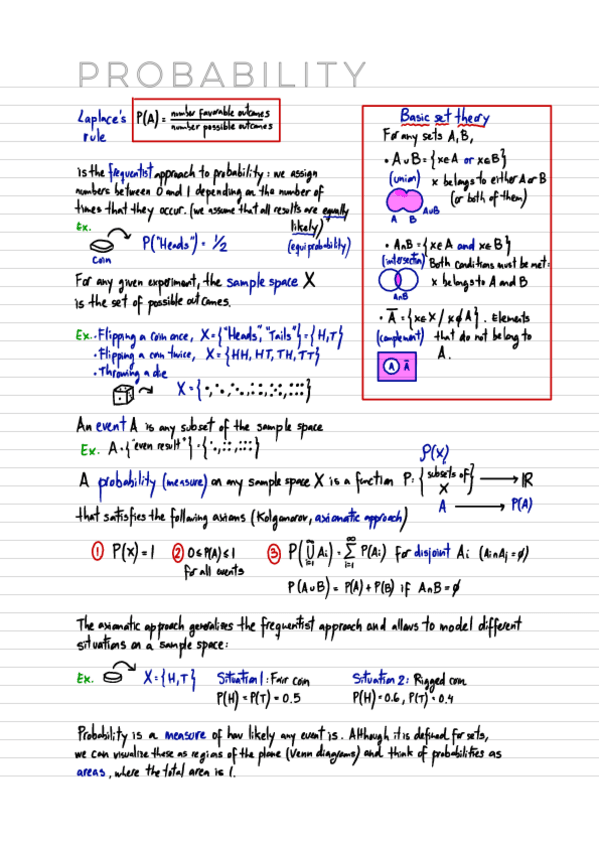 PROBABILITY
Laplace's rule P(A) = number favorable outcomes / number possible outcomes
is the frequentist approach to probability: we assign
numbers between 0 and 1 depending on the number of
times that they occur. (we assume that all results are equally
likely)
Ex.
coin
P("Heads") = 1/2 (equiprobability)
For any given experiment, the sample space X
is the set of possible outcomes.
Ex. • Flipping a coin once, X = {"Heads", "Tails"} = {H,T}
• Flipping a coin twice, X = {HH, HT, TH, TT}
• Throwing a die
X = {⚀,⚁,⚂,⚃,⚄,⚅}
Basic set theory
For any sets A, B,
• A∪B = {x∈A or x∈B}
(union) x belongs to either A or B
(or both of them)
A B A∪B
• A∩B = {x∈A and x∈B}
(intersection) Both conditions must be met:
x belongs to A and B
A∩B
• A̅ = {x∈X / x∉A}. Elements
(complement) that do not belong to
A.
A A̅
An event A is any subset of the sample space
Ex. A = {"even result"} = {⚁,⚃,⚅}
𝒫(X)
A probability (measure) on any sample space X is a function P: {subsets of X} ⟶ ℝ
A ⟶ P(A)
that satisfies the following axioms (Kolgomorov, axiomatic approach)
① P(X) = 1 ② 0 ≤ P(A) ≤ 1 ③ P(⋃_{i=1}^∞ Ai) = ∑_{i=1}^∞ P(Ai) for disjoint Ai (Ai∩Aj = ∅)
for all events
P(A∪B) = P(A) + P(B) if A∩B = ∅
The axiomatic approach generalises the frequentist approach and allows to model different
situations on a sample space:
Ex. X = {H,T} Situation 1: Fair coin Situation 2: Rigged coin
P(H) = P(T) = 0.5 P(H) = 0.6, P(T) = 0.4
Probability is a measure of how likely any event is. Although it is defined for sets,
we can visualize these as regions of the plane (Venn diagrams) and think of probabilities as
areas, where the total area is 1.